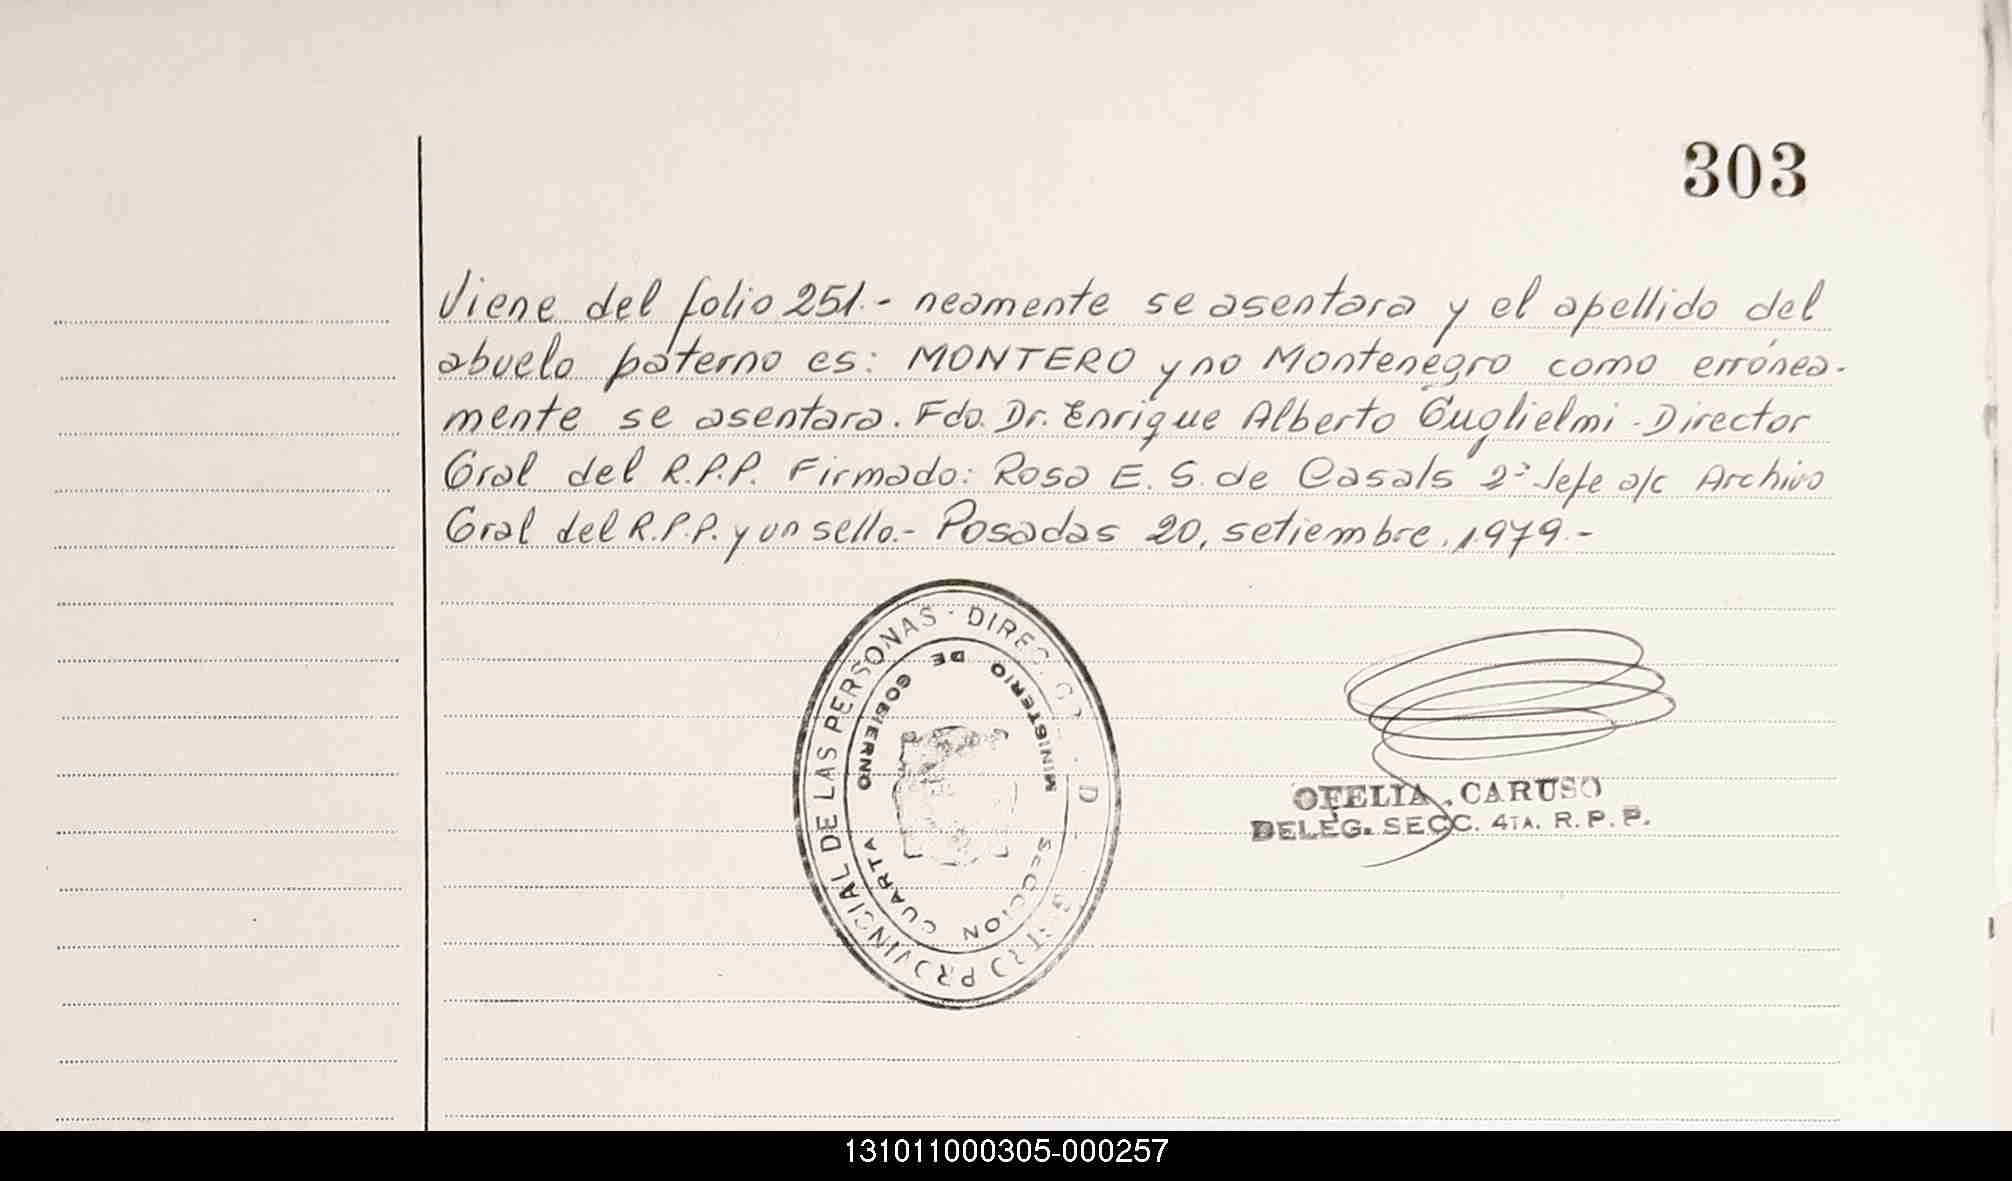 303
Viene del folio 251.- neamente se asentara y el apellido del
abuelo paterno es: MONTERO y no Montenegro como errónea-
mente se asentara. Fdo. Dr. Enrique Alberto Guglielmi - Director
Gral del R.P.P. Firmado: Rosa E. S. de Casals 2º Jefe a/c Archivo
Gral del R.P.P. y un sello.- Posadas 20, setiembre, 1979.-
PROVINCIAL DE LAS PERSONAS - DIREC
MINISTERIO DE GOBIERNO
SECCION CUARTA
OFELIA CARUSO
DELEG. SECC. 4TA. R. P. P.
131011000305-000257